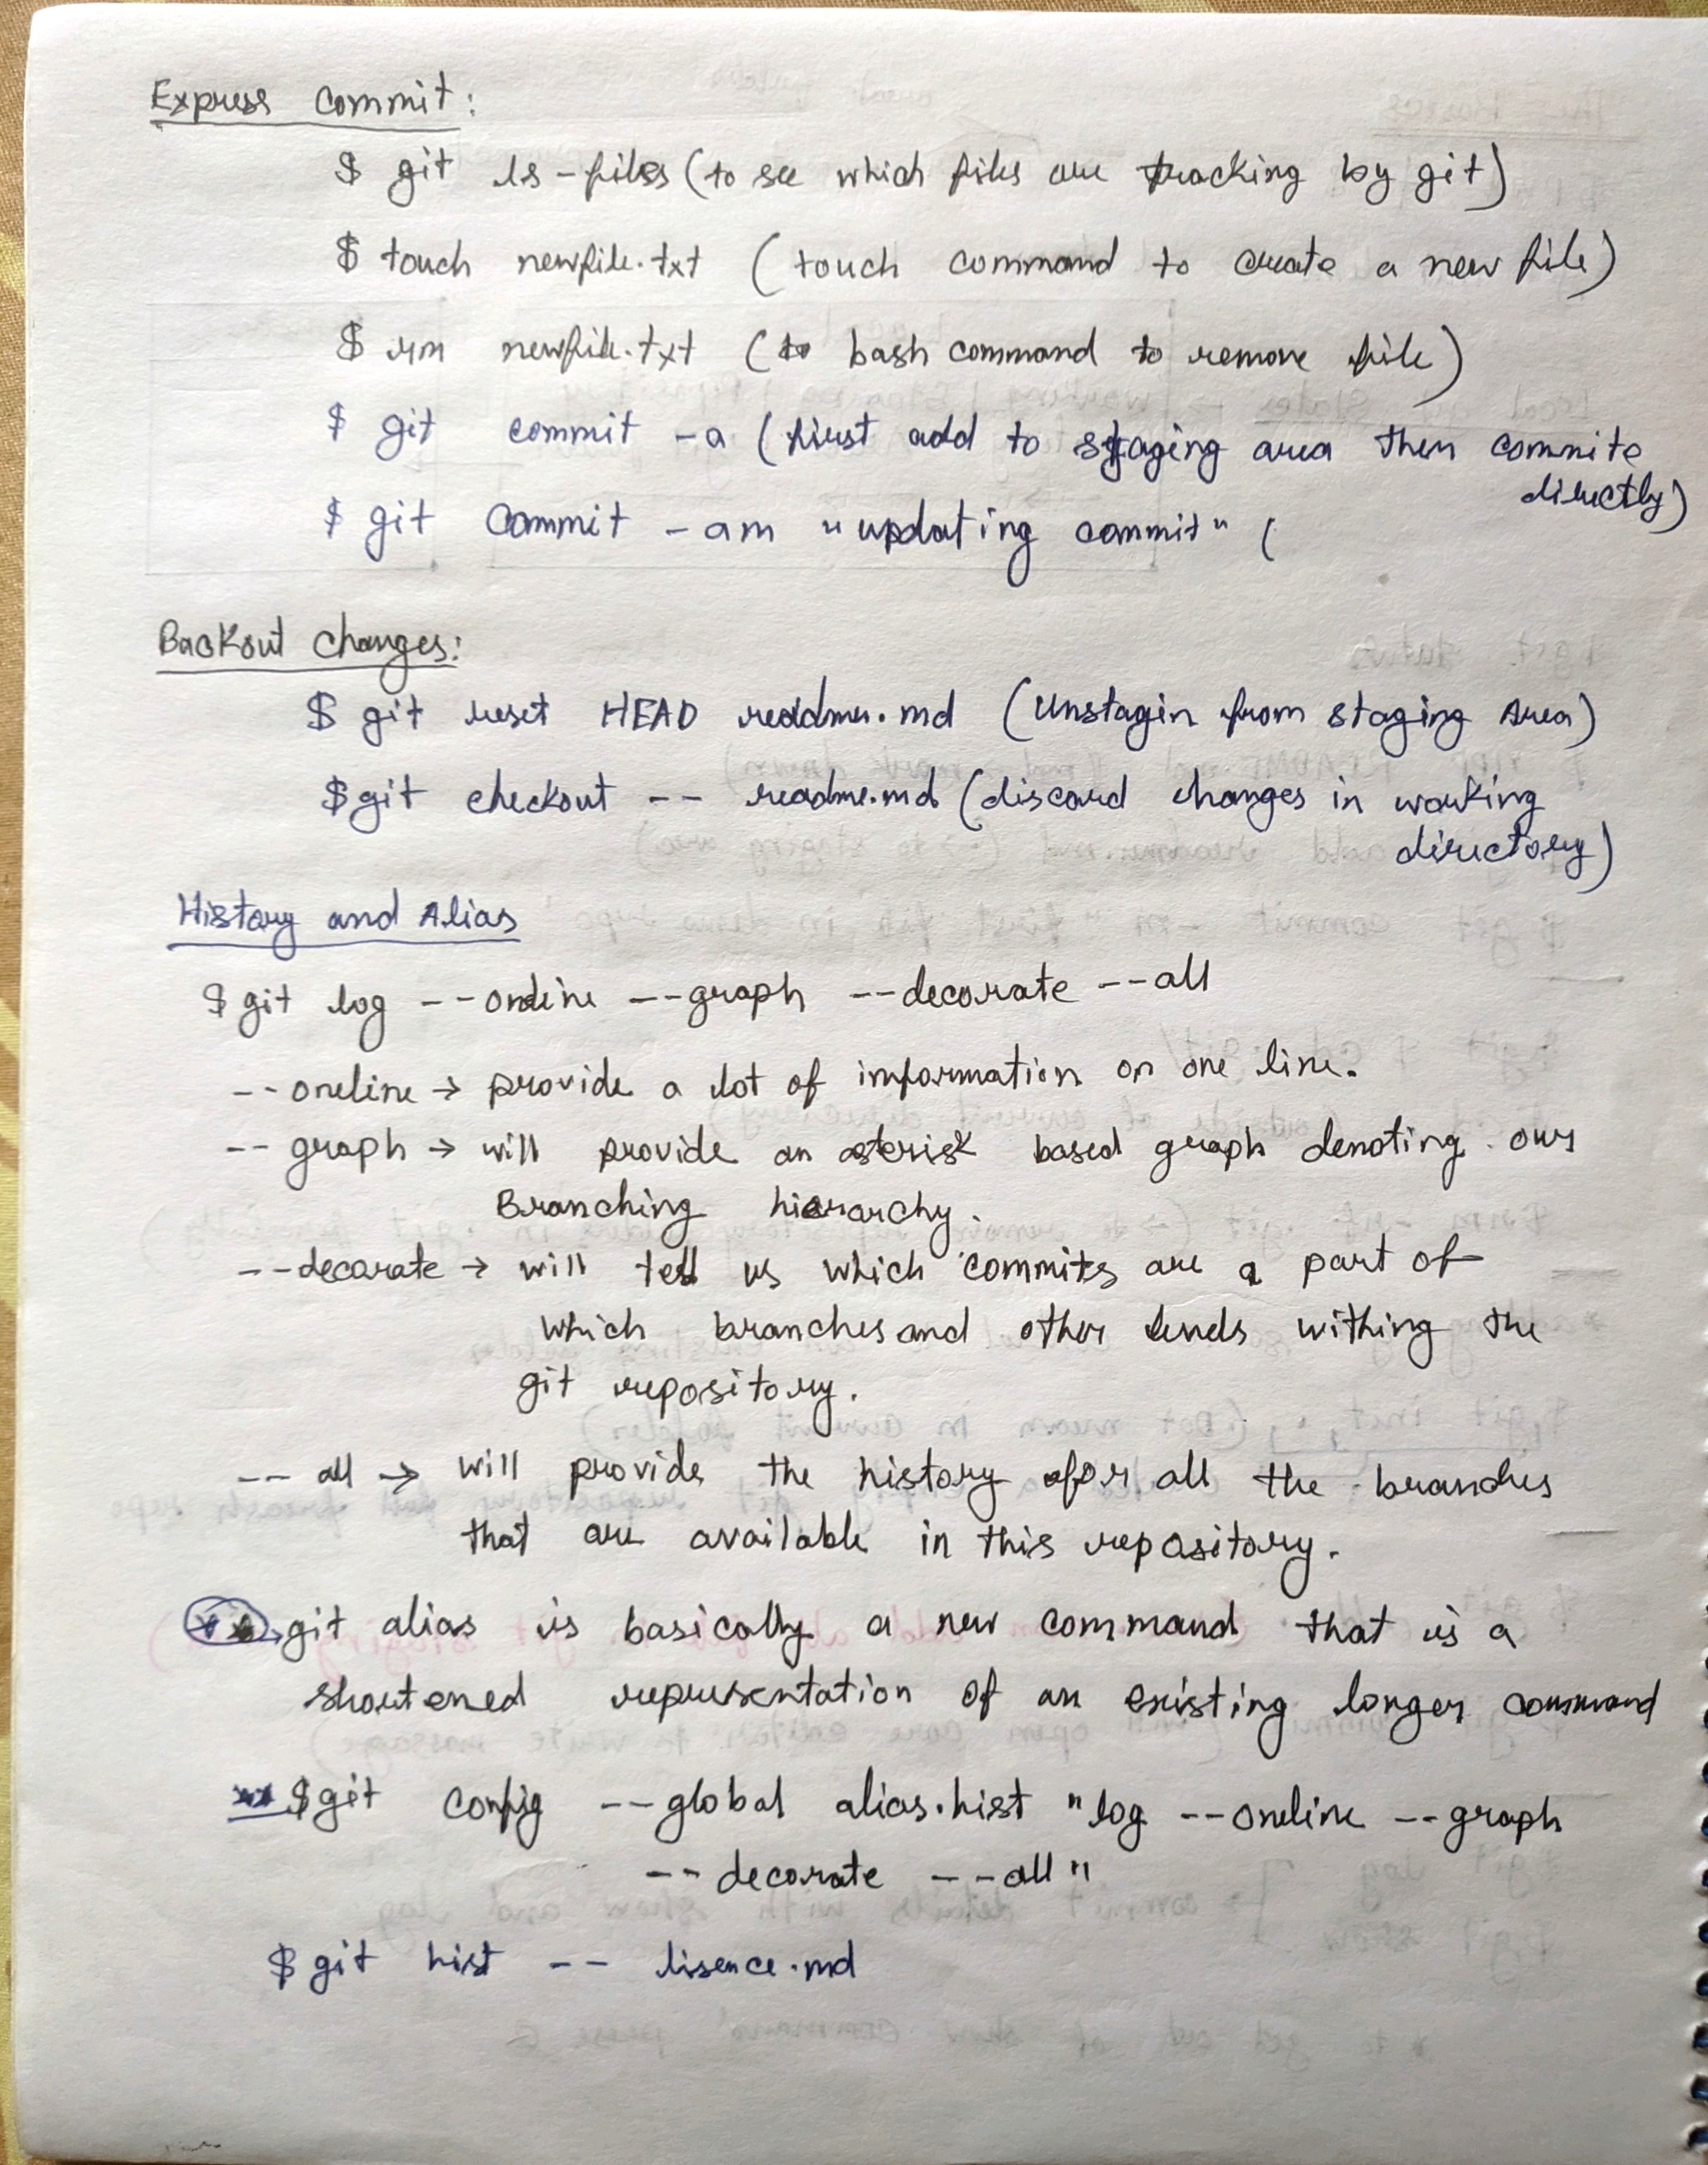 Express Commit:
$ git ls-files (to see which files are tracking by git)
$ touch newfile.txt (touch command to create a new file)
$ rm newfile.txt (to bash command to remove file)
$ git commit -a (first add to staging area then commite
directly)
$ git commit -am "updating commit" (
Backout changes:
$ git reset HEAD readme.md (Unstagin from staging Area)
$git checkout -- readme.md (discard changes in working
directory)
History and Alias
$ git log --oneline --graph --decorate --all
--oneline → provide a lot of information on one line.
-- graph → will provide an asterisk based graph denoting our
Branching hierarchy.
--decorate → will tell us which commits are a part of
which branches and other withing the
git repository.
-- all → will provide the history for all the branches
that are available in this repository.
** → git alias is basically a new command that is a
shortened representation of an existing longer command
** $git config --global alias.hist "log --oneline --graph
-- decorate --all"
$ git hist -- lisence.md